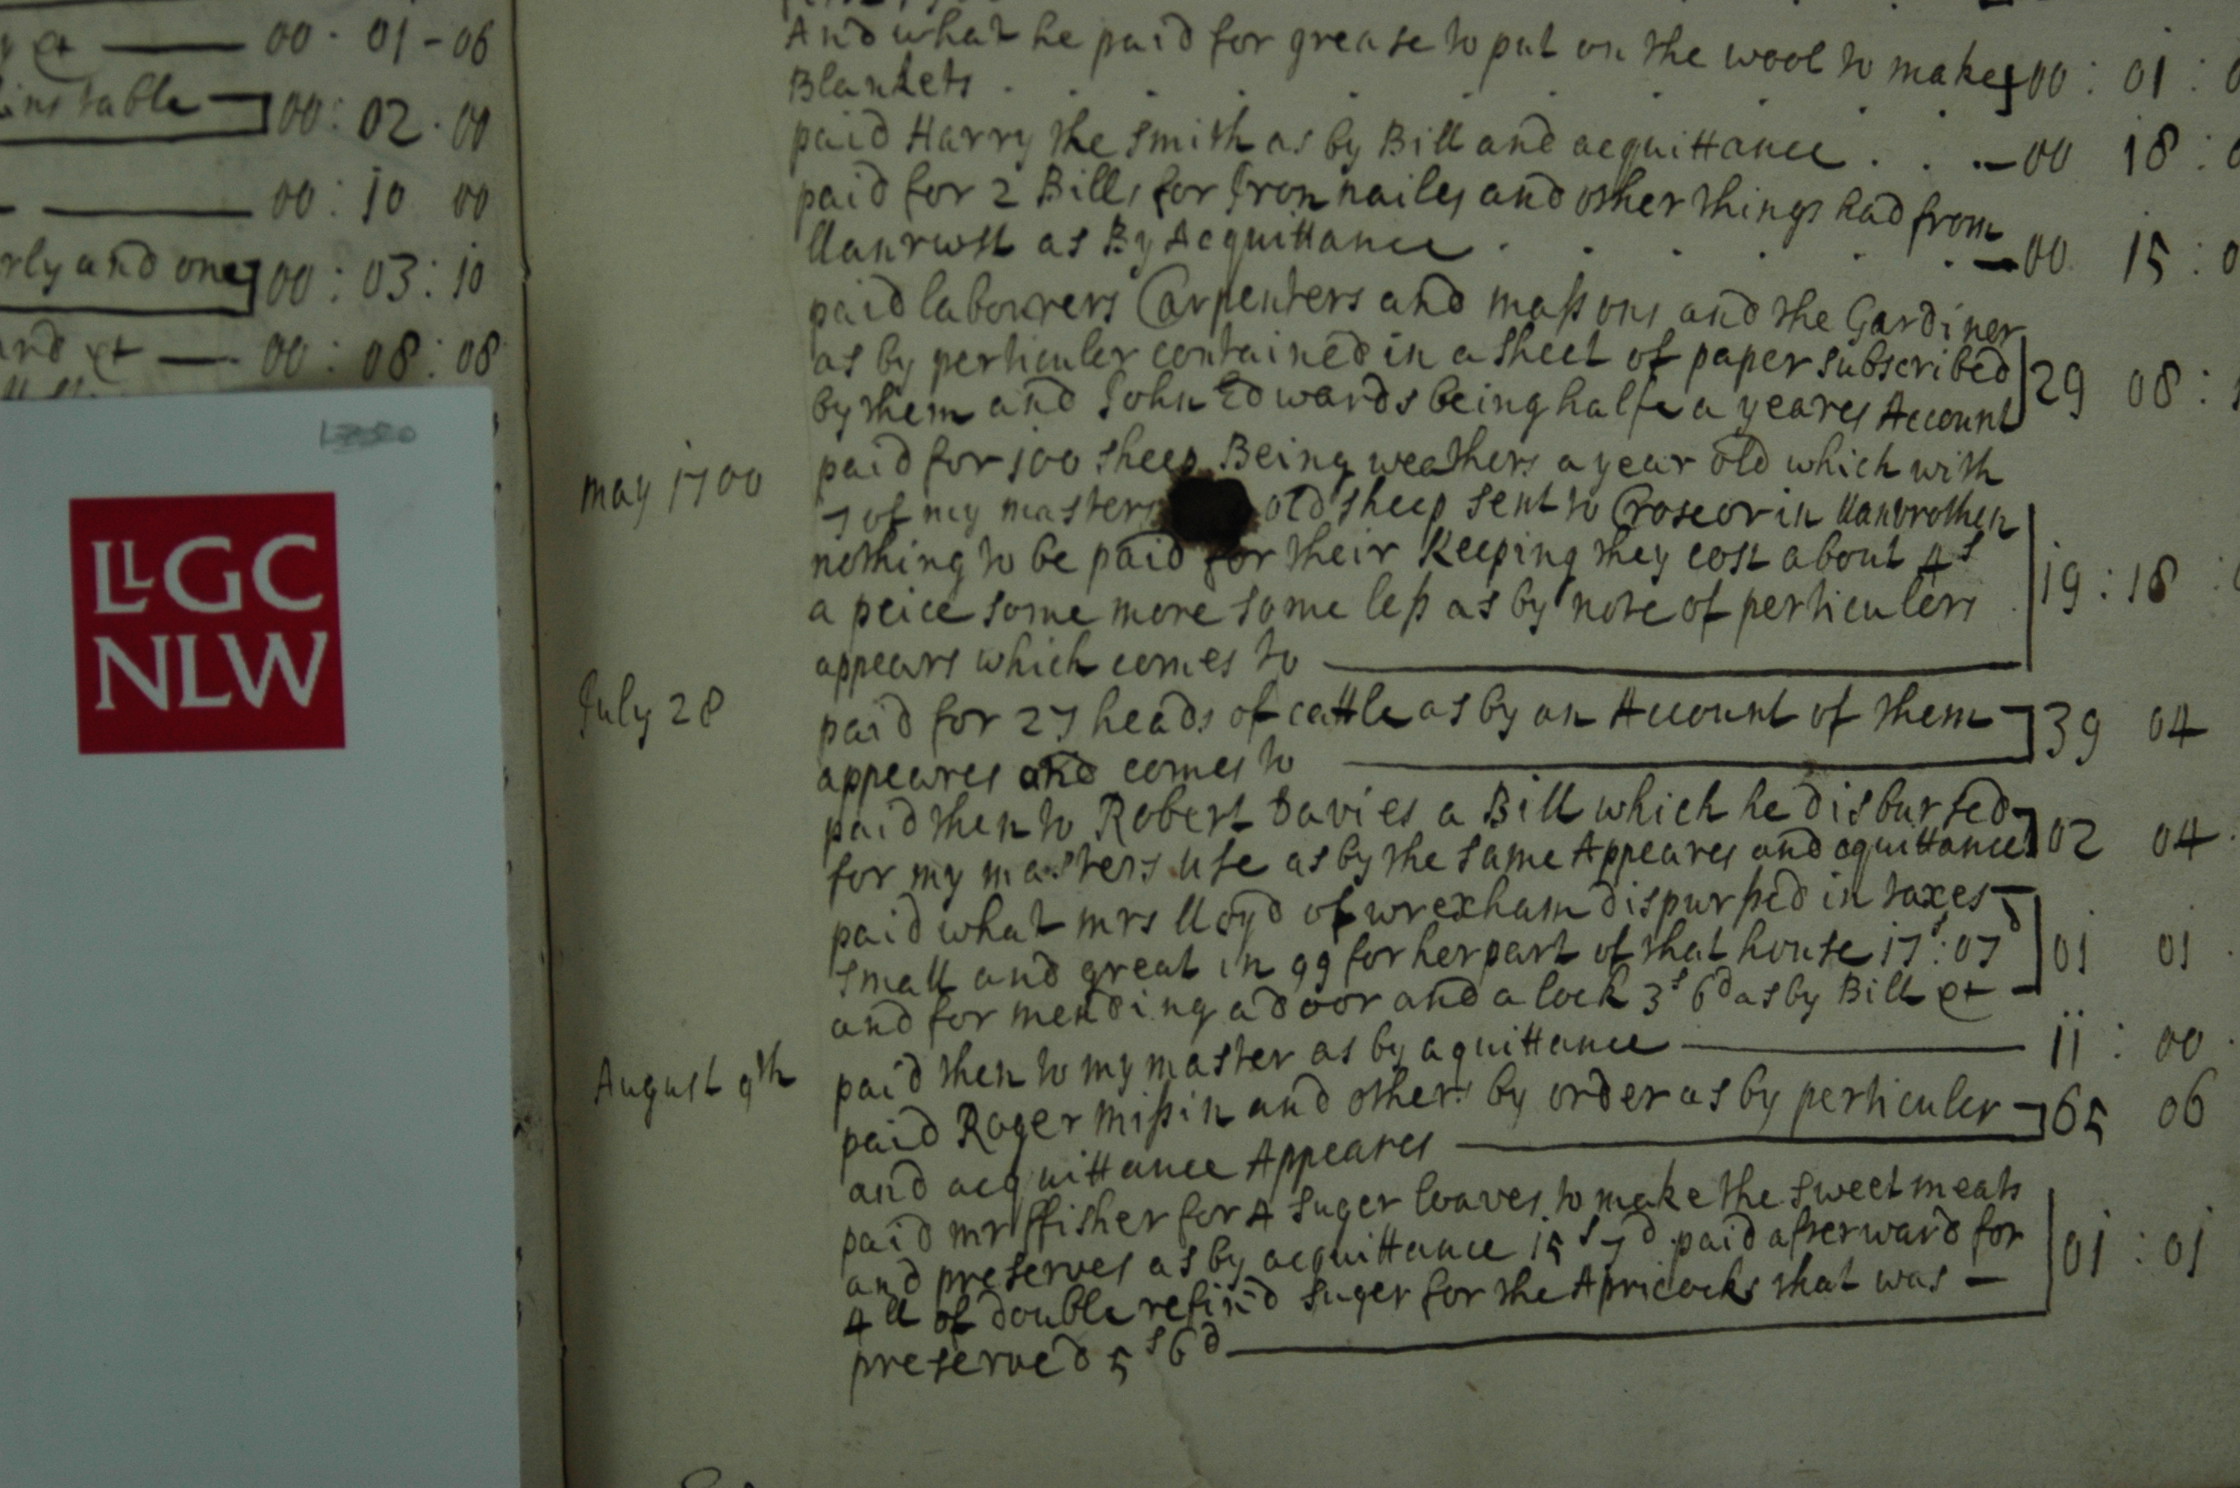 00 - 01 - 06
00 : 02 . 00
00 : 10 00
rly and one 00 : 03 : 10
00 : 08 : 08
LLGC
NLW
And what he paid for grease to put on the wool to make 00 : 01 :
Blankets
paid Harry the smith as by Bill and acquittance 00 18 :
paid for 2 Bills for Iron nailes and other things had from
llanrwst as By Acquittance 00 15 :
paid labourers Carpenters and massons and the Gardiner
as by perticuler contained in a sheet of paper subscribed
by them and John Edwards being halfe a yeares Account 29 08 :
may 1700 paid for 100 sheep Being weathers a year old which with
7 of my masters old sheep sent to Croseor in llanvrothen
nothing to be paid for their Keeping they cost about 4s
a peice some more some less as by note of perticulers 19 : 18
appears which comes to
July 28 paid for 27 heads of cattle as by an Account of them 39 04
appeares and comes to
paid then to Robert Davies a Bill which he disbursed
for my masters use as by the same Appeares and aquittance 02 04
paid what mrs lloyd of wrexham dispursed in taxes
small and great in 99 for her part of that house 17s : 07d 01 01
and for mending a door and a lock 3s 6d as by Bill &c
August 9th paid then to my master as by aquittance 11 : 00
paid Roger missin and others by order as by perticuler 65 06
and acquittance Appeares
paid mr ffisher for 4 suger loaves to make the sweet meats
and preserves as by acquittance 15s 7d paid afterward for 01 : 01
4ll of double refin'd suger for the Apricocks that was
preserved 5s 6d